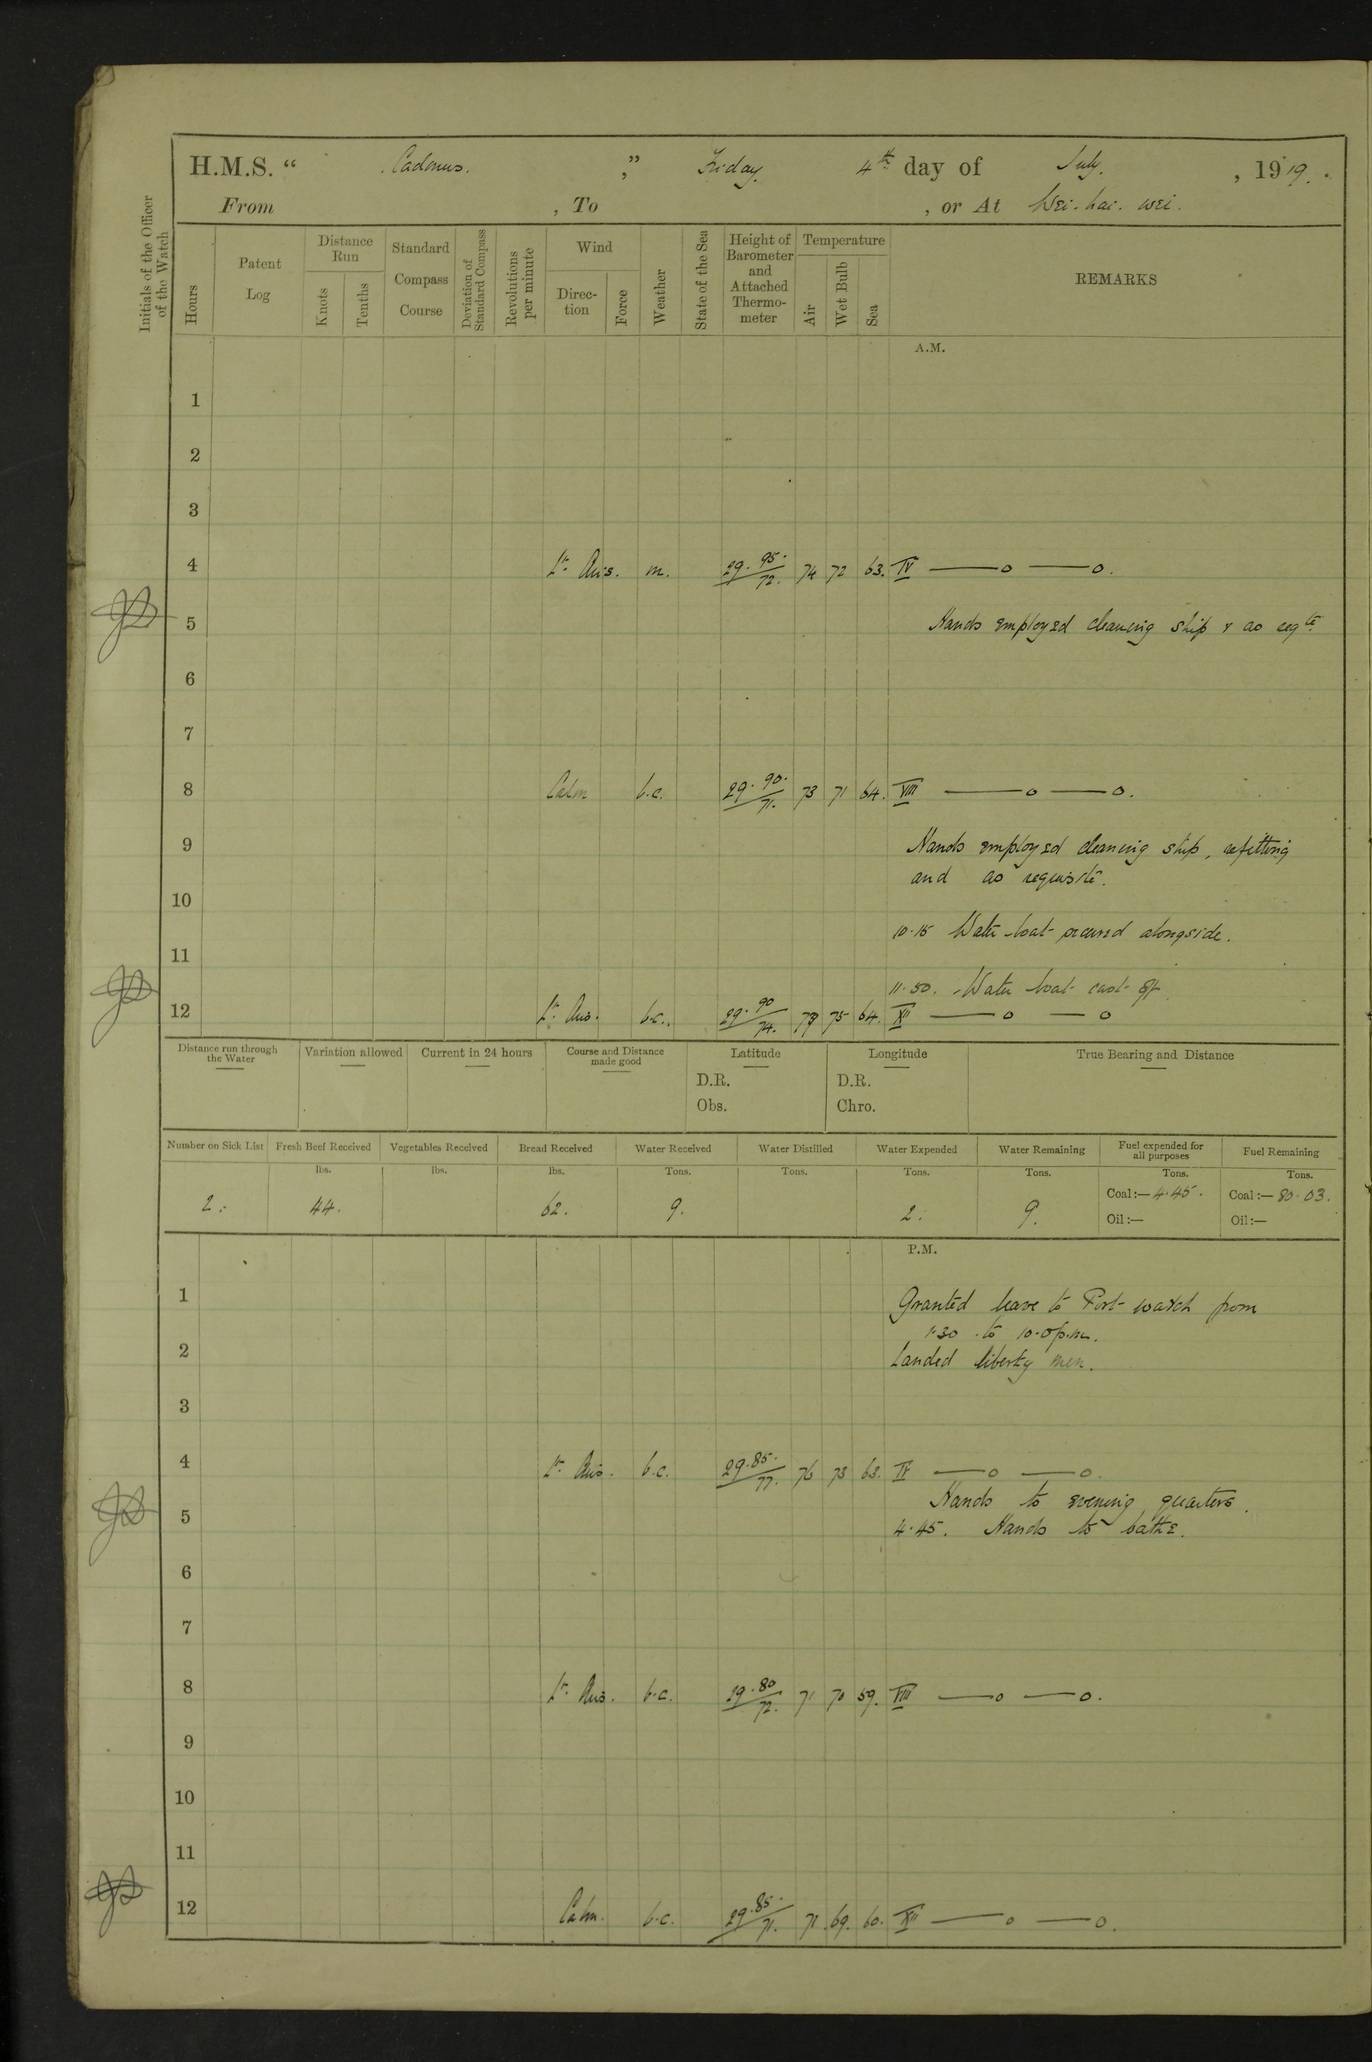 H.M.S. “ Cadmus. ,” Friday. 4th day of July. , 1919.
From , To , or At Wei-hai-wei.
Initials of the Officer of the Watch
Hours
Patent Log
Distance Run
Knots
Tenths
Standard Compass Course
Deviation of Standard Compass
Revolutions per minute
Wind
Direc-tion
Force
Weather
State of the Sea
Height of Barometer and Attached Thermo-meter
Temperature
Air
Wet Bulb
Sea
REMARKS
A.M.
1
2
3
4 Lt. Airs. m. 29.95. 72. 74 72 63. IV —o —o.
5 Hands employed cleaning ship & as reqte
6
7
8 Calm b.c. 29.90. 71. 73 71 64. VIII —o —o.
9 Hands employed cleaning ship, refitting
and as requisite.
10
10.15 Water boat secured alongside.
11
11.50. Water boat cast off
12 Lt. Airs. b.c. 29.90 74. 75 64. XII —o —o
Distance run through the Water
Variation allowed
Current in 24 hours
Course and Distance made good
Latitude
D.R.
Obs.
Longitude
D.R.
Chro.
True Bearing and Distance
Number on Sick List Fresh Beef Received Vegetables Received Bread Received Water Received Water Distilled Water Expended Water Remaining Fuel expended for all purposes Fuel Remaining
lbs. lbs. lbs. Tons. Tons. Tons. Tons. Tons. Tons.
2. 44. 62. 9. 2. 9. Coal:— 4.45. Coal:— 80.03.
Oil:— Oil:—
P.M.
1 Granted leave to Port watch from
1.30 to 10.0 p.m.
2 Landed liberty men.
3
4 Lt. Airs. b.c. 29.85. 77. 76 73 63. IV —o —o.
Hands to evening quarters.
5 4.45. Hands to bathe.
6
7
8 Lt. Airs. b.c. 29.80 72. 71 70 59. VIII —o —o.
9
10
11
12 Calm. b.c. 29.85. 71. 71. 69. 60. XII —o —o.